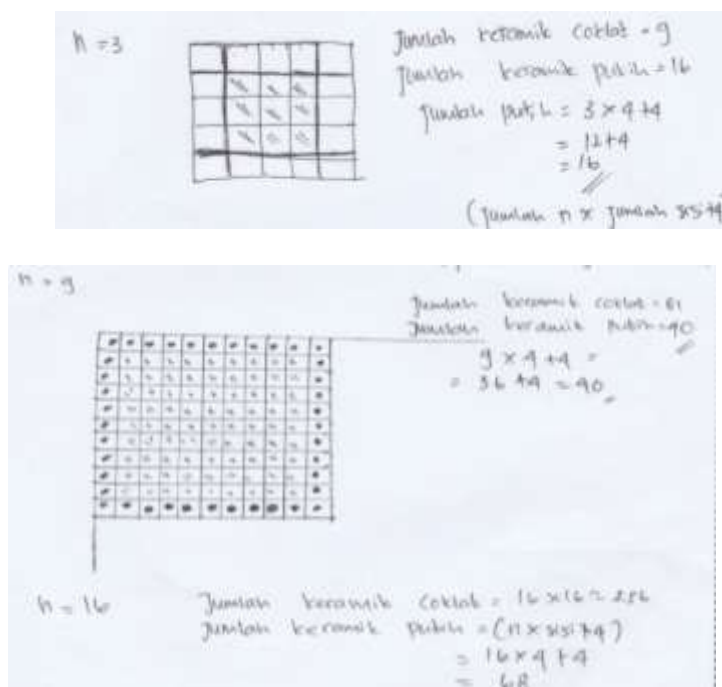 n = 3
Jumlah keramik coklat = 9
Jumlah keramik putih = 16
Jumlah putih = 3 x 4 + 4
= 12 + 4
= 16
(Jumlah n x jumlah sisi + 4
n = 9
Jumlah keramik coklat = 81
Jumlah keramik putih = 40
9 x 4 + 4 =
= 36 + 4 = 40
n = 16
Jumlah keramik coklat = 16 x 16 = 256
Jumlah keramik putih = (n x sisi + 4)
= 16 x 4 + 4
= 68